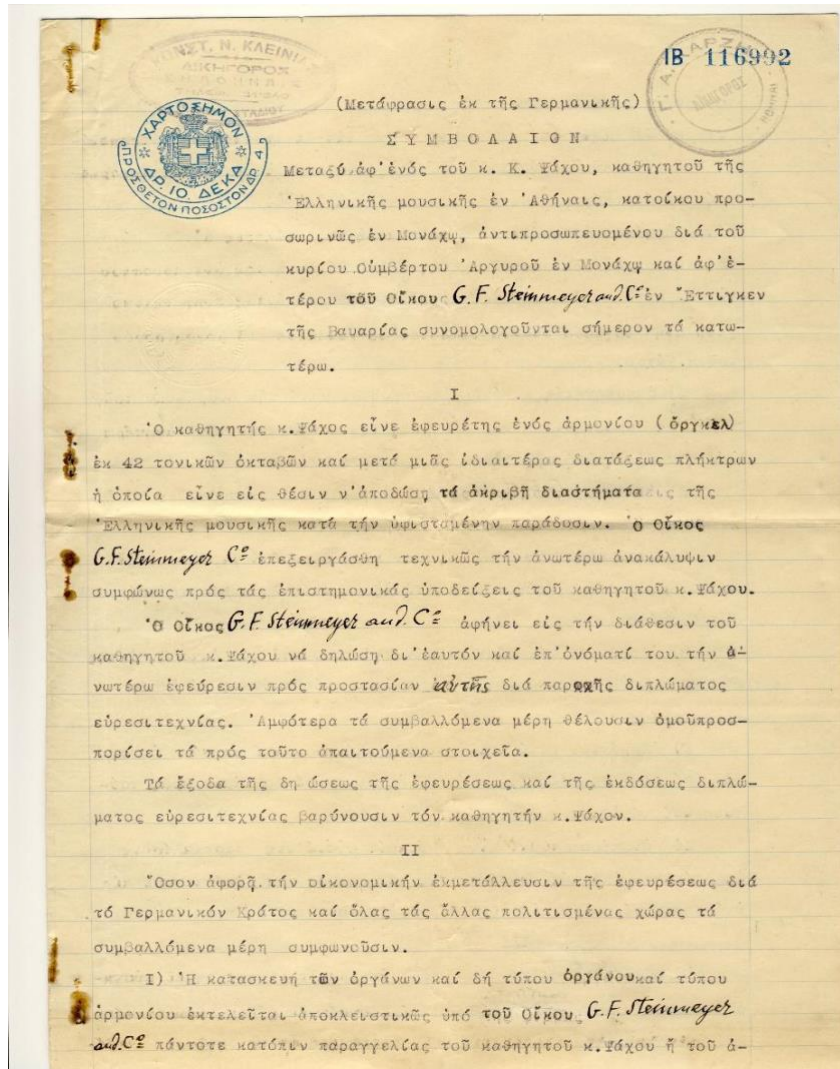 ΙΒ 116992
ΚΩΝΣΤ. Ν. ΚΛΕΙΝΙΑ
ΔΙΚΗΓΟΡΟΣ
Γ. Α. ΚΑΡΖΗ
ΔΙΚΗΓΟΡΟΣ
ΧΑΡΤΟΣΗΜΟΝ
ΔΡ. 10. ΔΕΚΑ
ΠΡΟΣΘΕΤΟΝ ΠΟΣΟΣΤΟΝ ΔΡ. 4
(Μετάφρασις ἐκ τῆς Γερμανικῆς)
ΣΥΜΒΟΛΑΙΟΝ
Μεταξύ ἀφ'ἑνός τοῦ κ. Κ. Ψάχου, καθηγητοῦ τῆς
Ἑλληνικῆς μουσικῆς ἐν Ἀθήναις, κατοίκου προ-
σωρινῶς ἐν Μονάχῳ, ἀντιπροσωπευομένου διά τοῦ
κυρίου Οὑμβέρτου Ἀργυροῦ ἐν Μονάχῳ καί ἀφ'ἑ-
τέρου τοῦ Οἴκους G. F. Steinmeyer and. Cº ἐν Ἔττιγκεν
τῆς Βαυαρίας συνομολογοῦνται σήμερον τά κατω-
τέρω.
I
Ὁ καθηγητής κ.Ψάχος εἶνε ἐφευρέτης ἑνός ἁρμονίου (ὄργκελ)
ἐκ 42 τονικῶν ὀκταβῶν καί μετά μιᾶς ἰδιαιτέρας διατάξεως πλήκτρων
ἡ ὁποία εἶνε εἰς θέσιν ν'ἀποδώσῃ τά ἀκριβῆ διαστήματα τῆς
Ἑλληνικῆς μουσικῆς κατά τήν ὑφισταμένην παράδοσιν. Ὁ Οἶκος
G.F. Steinmeyer Cº ἐπεξειργάσθη τεχνικῶς τήν ἀνωτέρω ἀνακάλυψιν
συμφώνως πρός τάς ἐπιστημονικάς ὑποδείξεις τοῦ καθηγητοῦ κ.Ψάχου.
Ὁ Οἶκος G. F. Steinmeyer and. Cº ἀφήνει εἰς τήν διάθεσιν τοῦ
καθηγητοῦ κ.Ψάχου νά δηλώσῃ δι'ἑαυτόν καί ἐπ'ὀνόματί του τήν ἀ-
νωτέρω ἐφεύρεσιν πρός προστασίαν αὐτῆς διά παροχῆς διπλώματος
εὑρεσιτεχνίας. Ἀμφότερα τά συμβαλλόμενα μέρη θέλουσιν ὁμοῦπροσ-
πορίσει τά πρός τοῦτο ἀπαιτούμενα στοιχεῖα.
Τά ἔξοδα τῆς δη ώσεως τῆς ἐφευρέσεως καί τῆς ἐκδόσεως διπλώ-
ματος εὑρεσιτεχνίας βαρύνουσιν τόν καθηγητήν κ.Ψάχον.
II
Ὅσον ἀφορᾷ τήν οἰκονομικήν ἐκμετάλλευσιν τῆς ἐφευρέσεως διά
τό Γερμανικόν Κράτος καί ὅλας τάς ἄλλας πολιτισμένας χώρας τά
συμβαλλόμενα μέρη συμφωνοῦσιν.
I) Ἡ κατασκευή τῶν ὀργάνων καί δή τύπου ὀργάνου καί τύπου
ἁρμονίου ἐκτελεῖται ἀποκλειστικῶς ὑπό τοῦ Οἴκου G. F. Steinmeyer
and. Cº πάντοτε κατόπιν παραγγελίας τοῦ καθηγητοῦ κ.Ψάχου ἤ τοῦ ἀ-